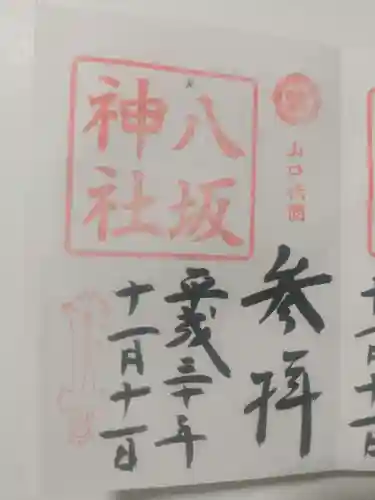 八坂
神社
山口祇園
参拝
平成三十年
十一月十一日